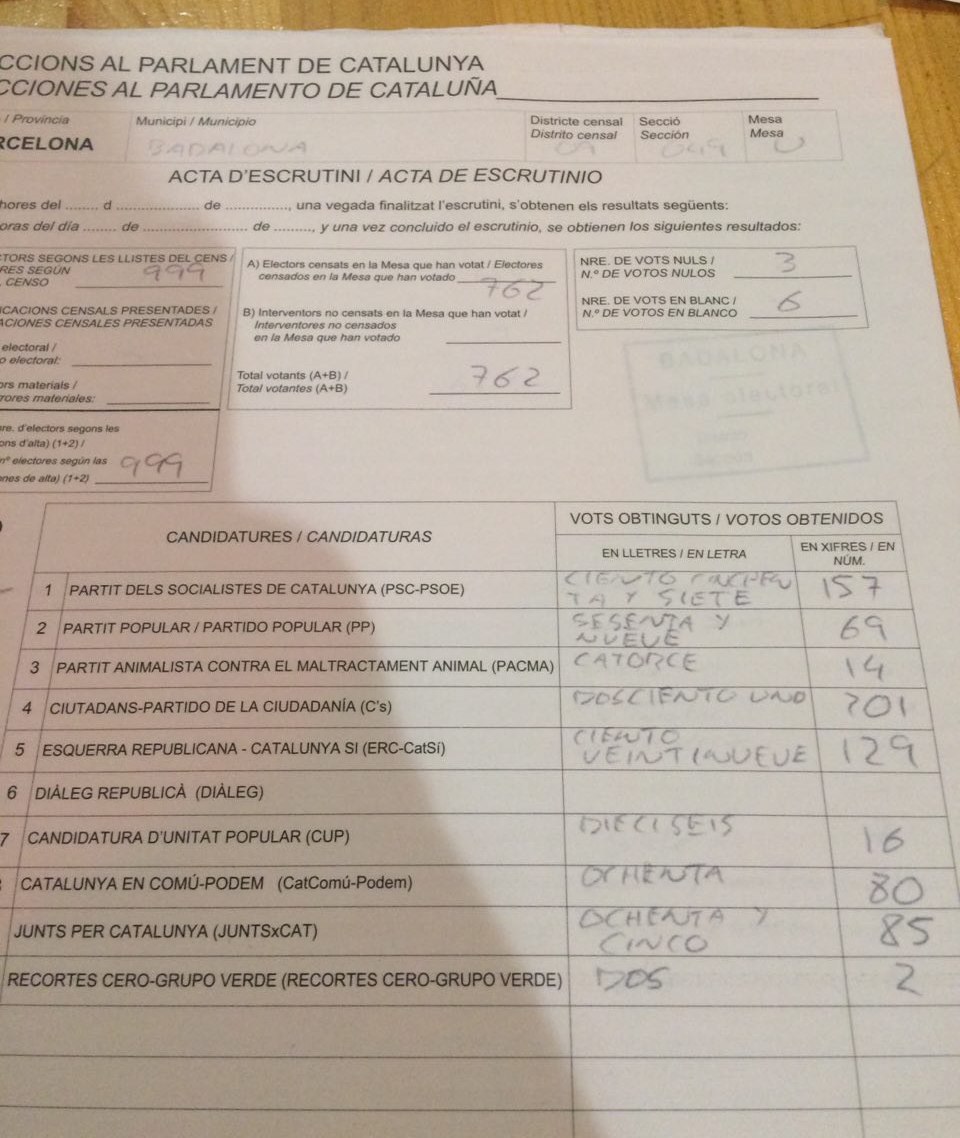 CCIONS AL PARLAMENT DE CATALUNYA
CCIONES AL PARLAMENTO DE CATALUÑA
/ Província
RCELONA
Municipi / Municipio
BADALONA
Districte censal
Distrito censal
09
Secció
Sección
049
Mesa
Mesa
U
ACTA D'ESCRUTINI / ACTA DE ESCRUTINIO
hores del ........ d .................... de ..............., una vegada finalitzat l'escrutini, s'obtenen els resultats següents:
oras del día ........ de ......................... de ..........., y una vez concluido el escrutinio, se obtienen los siguientes resultados:
CTORS SEGONS LES LLISTES DEL CENS /
RES SEGÚN
CENSO 999
ICACIONS CENSALS PRESENTADES /
ACIONES CENSALES PRESENTADAS
electoral /
o electoral:
ors materials /
rores materiales:
re. d'electors segons les
ons d'alta) (1+2) /
nº electores según las
ones de alta) (1+2) 999
A) Electors censats en la Mesa que han votat / Electores
censados en la Mesa que han votado 762
B) Interventors no censats en la Mesa que han votat /
Interventores no censados
en la Mesa que han votado
Total votants (A+B) /
Total votantes (A+B) 762
NRE. DE VOTS NULS /
N.º DE VOTOS NULOS 3
NRE. DE VOTS EN BLANC /
N.º DE VOTOS EN BLANCO 6
BADALONA
Mesa electoral
CANDIDATURES / CANDIDATURAS
VOTS OBTINGUTS / VOTOS OBTENIDOS
EN LLETRES / EN LETRA
EN XIFRES / EN
NÚM.
1 PARTIT DELS SOCIALISTES DE CATALUNYA (PSC-PSOE) CIENTO CINCUEN
TA Y SIETE 157
2 PARTIT POPULAR / PARTIDO POPULAR (PP) SESENTA Y
NUEVE 69
3 PARTIT ANIMALISTA CONTRA EL MALTRACTAMENT ANIMAL (PACMA) CATORCE 14
4 CIUTADANS-PARTIDO DE LA CIUDADANÍA (C's) DOSCIENTO UNO 201
5 ESQUERRA REPUBLICANA - CATALUNYA SI (ERC-CatSí) CIENTO
VEINTINUEVE 129
6 DIÀLEG REPUBLICÀ (DIÀLEG)
7 CANDIDATURA D'UNITAT POPULAR (CUP) DIECISEIS 16
CATALUNYA EN COMÚ-PODEM (CatComú-Podem) OCHENTA 80
JUNTS PER CATALUNYA (JUNTSxCAT) OCHENTA Y
CINCO 85
RECORTES CERO-GRUPO VERDE (RECORTES CERO-GRUPO VERDE) DOS 2